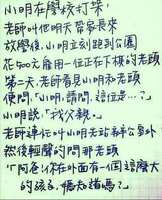 小明在學校打架，
老師叫他明天帶家長來
放學後，小明立刻跑到公園
花500元雇用一位正在下棋的老頭
第二天，老師看見小明和老頭
便問：「小明，請問，這位是…？」
小明說，「我父親。」
老師連忙叫小明先站在辦公室外
然後輕聲的問那老頭
「阿爸！你在外面有一個這麼大
的孩子，媽知道嗎？」